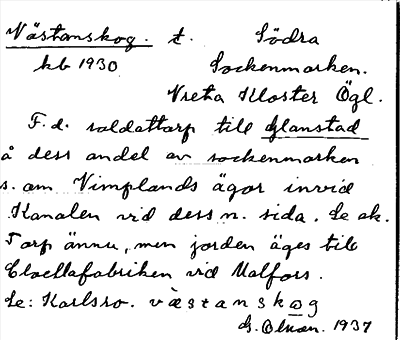 Västanskog. t. Södra
kb 1930 Sockenmarken.
Vreta Kloster Ögl.
F.d. soldattorp till Glanstad
å dess andel av sockenmarken
s. om Vimplands ägor invid
Kanalen vid dess n. sida. Se ek.
Torp ännu, men jorden äges till
Cloettafabriken vid Malfors.
Se: Karlsro. västanskog
G. Olson. 1937